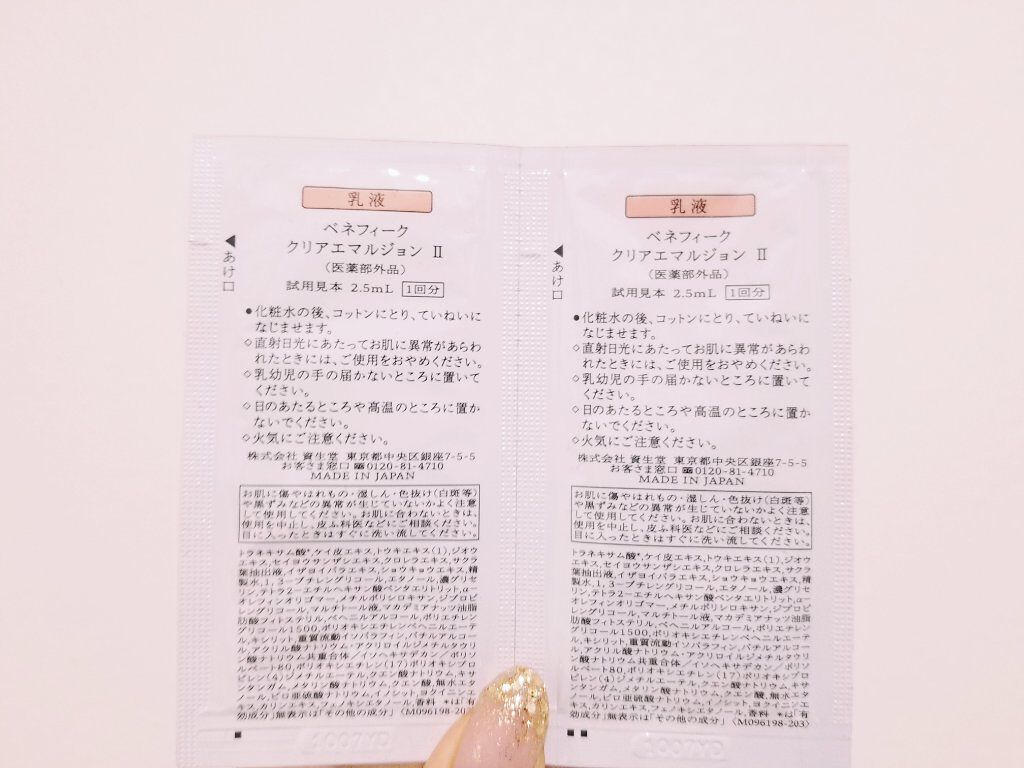 乳液
ベネフィーク
クリアエマルジョン Ⅱ
（医薬部外品）
試用見本 2.5mL 1回分
◀あけ口
●化粧水の後、コットンにとり、ていねいに
なじませます。
◇直射日光にあたってお肌に異常があらわ
れたときには、ご使用をおやめください。
◇乳幼児の手の届かないところに置いて
ください。
◇日のあたるところや高温のところに置か
ないでください。
◇火気にご注意ください。
株式会社 資生堂 東京都中央区銀座7-5-5
お客さま窓口 0120-81-4710
MADE IN JAPAN
お肌に傷やはれもの・湿しん・色抜け(白斑等)
や黒ずみなどの異常が生じていないかよく注意
して使用してください。お肌に合わないときは、
使用を中止し、皮ふ科医などにご相談ください。
目に入ったときはすぐに洗い流してください。
トラネキサム酸*,ケイ皮エキス,トウキエキス(1),ジオウ
エキス,セイヨウサンザシエキス,クロレラエキス,サクラ
葉抽出液,イザヨイバラエキス,ショウキョウエキス,精
製水,1,3-ブチレングリコール,エタノール,濃グリセ
リン,テトラ2-エチルヘキサン酸ペンタエリトリット,α-
オレフィンオリゴマー,メチルポリシロキサン,ジプロピ
レングリコール,マルチトール液,マカデミアナッツ油脂
肪酸フィトステリル,ベヘニルアルコール,ポリエチレン
グリコール1500,ポリオキシエチレンベヘニルエーテ
ル,キシリット,重質流動イソパラフィン,バチルアルコー
ル,アクリル酸ナトリウム・アクリロイルジメチルタウリ
ン酸ナトリウム共重合体／イソヘキサデカン／ポリソ
ルベート80,ポリオキシエチレン(17)ポリオキシプロ
ピレン(4)ジメチルエーテル,クエン酸ナトリウム,キサ
ンタンガム,メタリン酸ナトリウム,クエン酸,無水エタ
ノール,ピロ亜硫酸ナトリウム,イノシット,ヨクイニンエ
キス,カリンエキス,フェノキシエタノール,香料 *は「有
効成分」無表示は「その他の成分」〈M096198-203〉
■
1007YD
乳液
ベネフィーク
クリアエマルジョン Ⅱ
（医薬部外品）
試用見本 2.5mL 1回分
◀あけ口
●化粧水の後、コットンにとり、ていねいに
なじませます。
◇直射日光にあたってお肌に異常があらわ
れたときには、ご使用をおやめください。
◇乳幼児の手の届かないところに置いて
ください。
◇日のあたるところや高温のところに置か
ないでください。
◇火気にご注意ください。
株式会社 資生堂 東京都中央区銀座7-5-5
お客さま窓口 0120-81-4710
MADE IN JAPAN
お肌に傷やはれもの・湿しん・色抜け(白斑等)
や黒ずみなどの異常が生じていないかよく注意
して使用してください。お肌に合わないときは、
使用を中止し、皮ふ科医などにご相談ください。
目に入ったときはすぐに洗い流してください。
トラネキサム酸*,ケイ皮エキス,トウキエキス(1),ジオウ
エキス,セイヨウサンザシエキス,クロレラエキス,サクラ
葉抽出液,イザヨイバラエキス,ショウキョウエキス,精
製水,1,3-ブチレングリコール,エタノール,濃グリセ
リン,テトラ2-エチルヘキサン酸ペンタエリトリット,α-
オレフィンオリゴマー,メチルポリシロキサン,ジプロピ
レングリコール,マルチトール液,マカデミアナッツ油脂
肪酸フィトステリル,ベヘニルアルコール,ポリエチレン
グリコール1500,ポリオキシエチレンベヘニルエーテ
ル,キシリット,重質流動イソパラフィン,バチルアルコー
ル,アクリル酸ナトリウム・アクリロイルジメチルタウリ
ン酸ナトリウム共重合体／イソヘキサデカン／ポリソ
ルベート80,ポリオキシエチレン(17)ポリオキシプロ
ピレン(4)ジメチルエーテル,クエン酸ナトリウム,キサ
ンタンガム,メタリン酸ナトリウム,クエン酸,無水エタ
ノール,ピロ亜硫酸ナトリウム,イノシット,ヨクイニンエ
キス,カリンエキス,フェノキシエタノール,香料 *は「有
効成分」無表示は「その他の成分」〈M096198-203〉
■■
1007YD